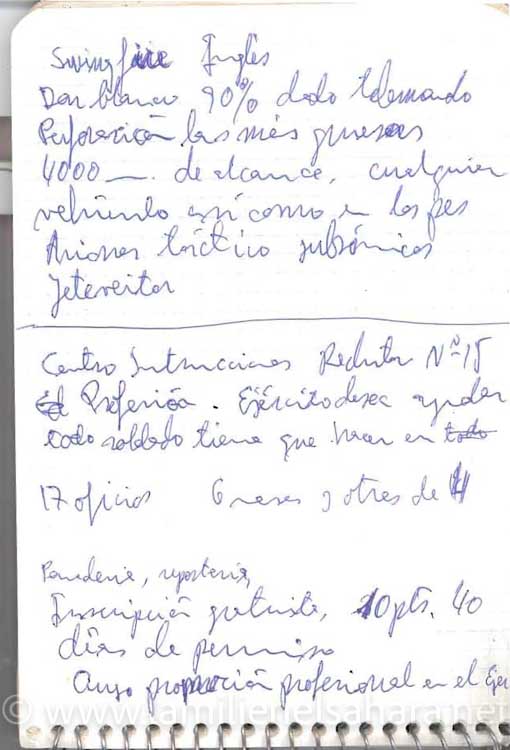 Swingfire Inglés
Dan blanco 90% dado telemando
Perforación las más gruesas
4000 —. de alcance, cualquier
vehículo así como en
Aviones táctico subsónicos
Centro Instrucciones Reclutas Nº 15
El Preferió. Ejército desea ayudar
todo soldado tiene que hacer en todo
17 oficios 6 meses y otros de 4
Panadería, repostería,
Inscripción gratuita, 10 pts. 40
días de permiso
profesional en el Ejer
© www.lamilienelsahara.net